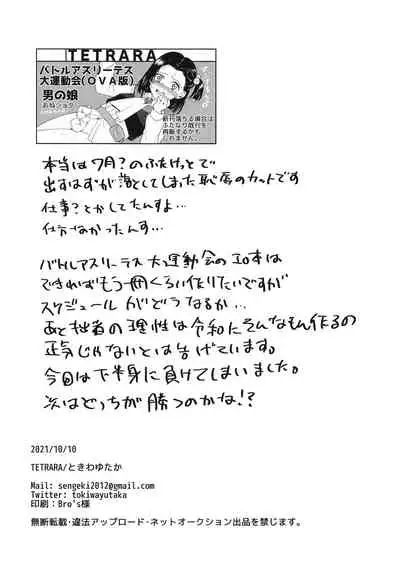 TETRARA
バトルアスリーテス
大運動会(OVA版)
男の娘
おねショタ
新刊落ちる場合は
ふたなり既刊を
再販するかも
しれません。
本当は7月?のふたけっとで
出すはずが落としてしまった恥辱のカットです
仕事?とかしてたんすよ…
仕方なかったんす…
バトルアスリーテス大運動会のエロ本は
できればもう一冊くらい作りたいですが
スケジュールがどうなるか…
あと拙者の理性は令和にそんなもん作るの
正気じゃないとは告げています。
今回は下半身に負けてしまいました。
次はどっちが勝つのかな!?
2021/10/10
TETRARA/ときわゆたか
Mail: sengeki2012@gmail.com
Twitter: tokiwayutaka
印刷:Bro's様
無断転載・違法アップロード・ネットオークション出品を禁じます。